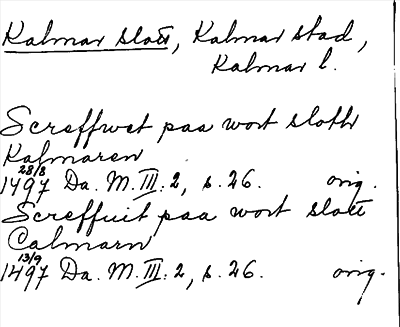 Kalmar slott, Kalmar stad,
Kalmar l.
Screffwet paa wort sloth
Kalmaren
28/8
1497 Da. M. III: 2, s. 26. orig.
Screffuit paa wort slott
Calmarn
13/9
1497 Da. M. III: 2, s. 26. orig.